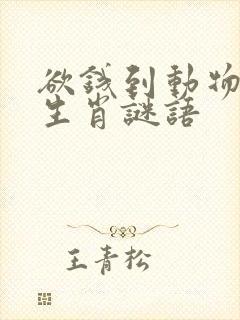 欲錢到動物
生肖謎語
王青松